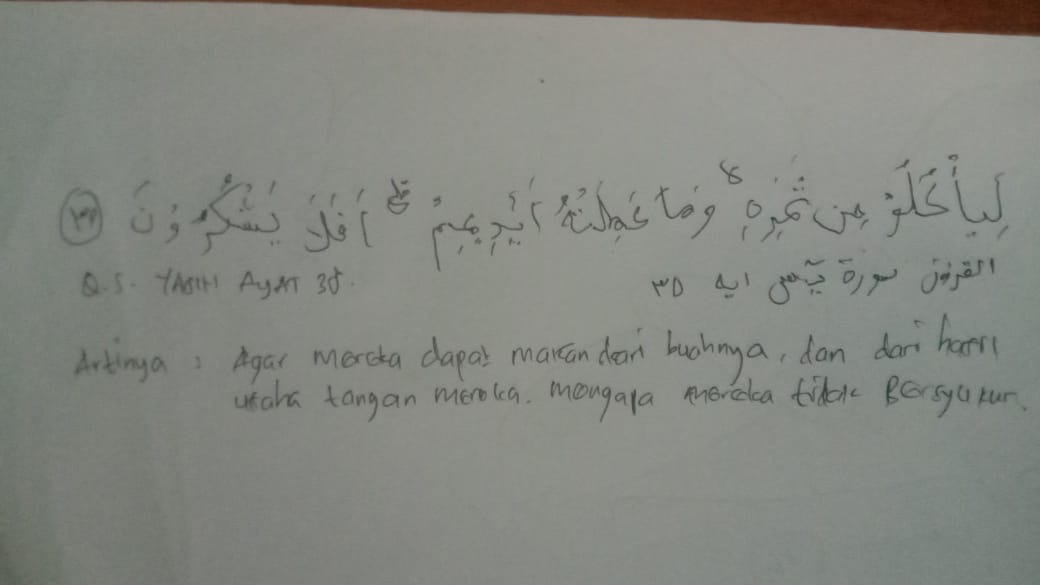 لِيَأْكُلُوْ مِن ثَمَرِهِ ۙ وَمَا عَمِلَتْهُ أَيْدِيهِمْ ۗ أَفَلَا يَشْكُرُوْنَ
Q.S. YASIN AYAT 35. القرءن سورة يٓس ايه ٣٥
Artinya : Agar mereka dapat makan dari buahnya, dan dari hasil
usaha tangan mereka. mengapa mereka tidak Bersyukur.